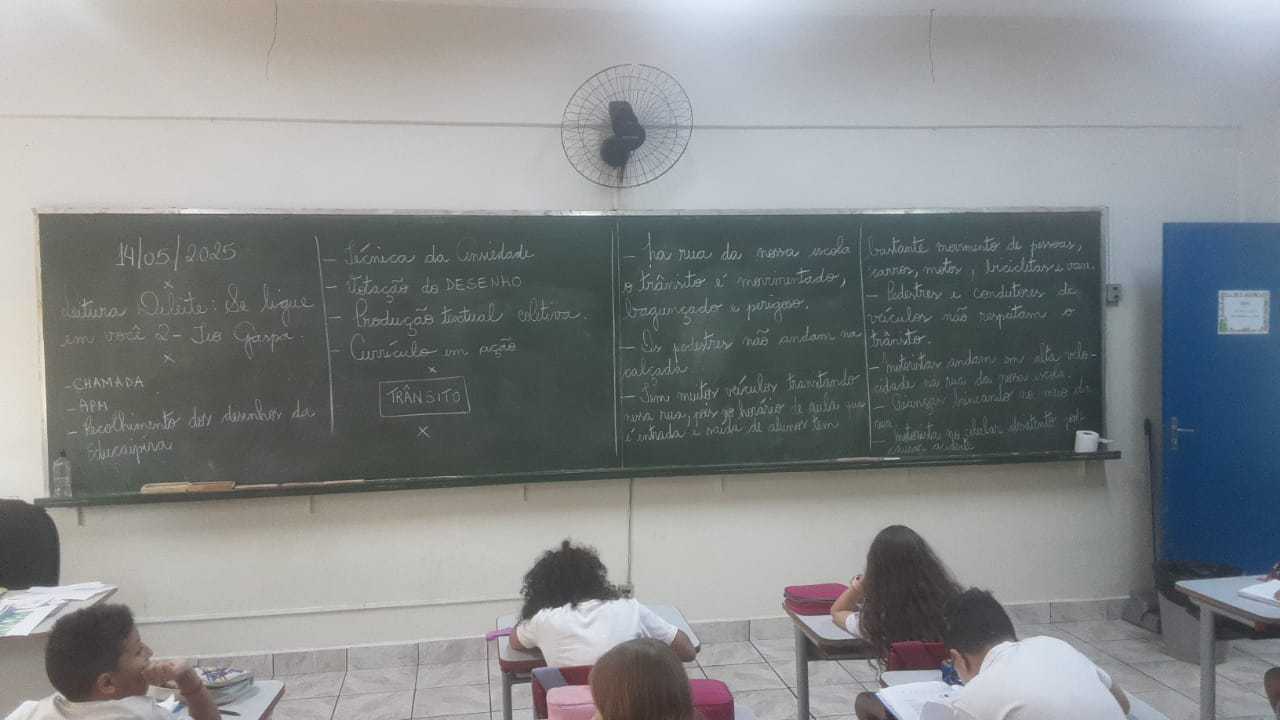 14/05/2025
x
Leitura Deleite: Se ligue
em você 2 - Tio Gaspa.
x
- CHAMADA
- APM
- Recolhimento dos desenhos da
Educaipira
- Técnica da Ansiedade
- Votação do DESENHO
- Produção textual coletiva.
- Currículo em ação
x
TRÂNSITO
x
- Na rua da nossa escola
o trânsito é movimentado,
bagunçado e perigoso.
- Os pedestres não andam na
calçada.
- Tem muitos veículos transitando
nessa rua, pois no horário de aula que
é entrada e saída de alunos tem
bastante movimento de pessoas,
carros, motos, bicicletas e vans.
- Pedestres e condutores de
veículos não respeitam o
trânsito.
- Motoristas andam em alta velo-
cidade na rua da nossa escola
- Crianças brincando no meio da
rua
- Motorista no celular desatento pode